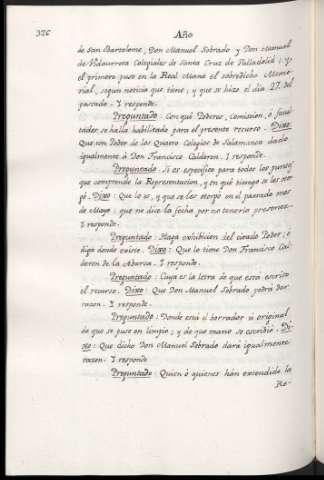 326
Año
de San Bartolome, Don Manuel Sobrado y Don Manuel
de Vidaurreta Colegiales de Santa Cruz de Valladolid; y
el primero puso en la Real Mano el sobredicho Memo-
rial, segun noticia que tiene; y que se hizo el dia 27 del
pasado. Y responde.
Preguntado: Con qué Poderes, Comision, ó facul-
tades se halla habilitado para el presente recurso. Dixo:
Que con Poder de los Quatro Colegios de Salamanca dado
igualmente á Don Francisco Calderon. Y responde.
Preguntado: Si es especifico para todos los puntos
que comprende la Representacion, y en qué tiempo se les otor-
gó. Dixo: Que lo es, y que se les otorgó en el pasado mes
de Mayo, que no dice la fecha por no tenerla presente.
Y responde.
Preguntado: Haga exhibicion del citado Poder, ó
diga donde existe. Dixo: Que lo tiene Don Francisco Cal-
deron de la Abarca. Y responde.
Preguntado: Cuya es la letra de que está escrito
el recurso. Dixo: Que Don Manuel Sobrado podrá dar
razon. Y responde.
Preguntado: Donde está el borrador ú original
de que se puso en limpio; y de que mano se escribió. Di-
xo: Que dicho Don Manuel Sobrado dará igualmente
razon. Y responde
Preguntado: Quien ó quienes han extendido la
Re-